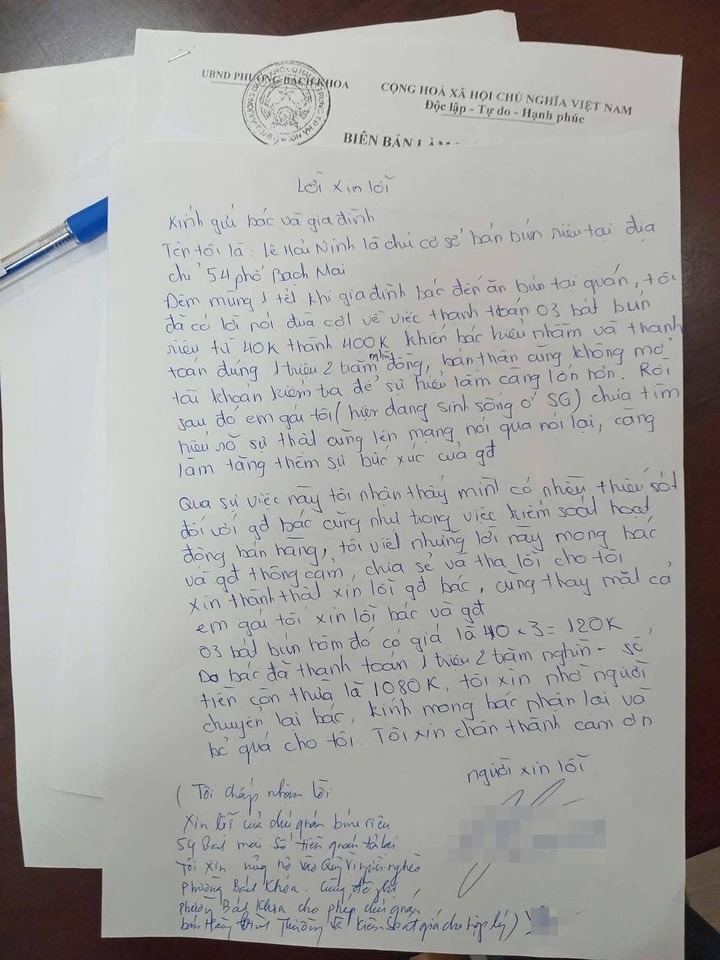 UBND PHƯỜNG BÁCH KHOA
CỘNG HOÀ XÃ HỘI CHỦ NGHĨA VIỆT NAM
Độc lập - Tự do - Hạnh phúc
BIÊN BẢN
Lời xin lỗi
Kính gửi bác và gia đình
Tên tôi là: Lê Hải Ninh là chủ cơ sở bán bún riêu tại địa
chỉ 54 phố Bạch Mai
Đêm mùng 1 tết khi gia đình bác đến ăn bún tại quán, tôi
đã có lời nói đùa cợt về việc thanh toán 03 bát bún
riêu từ 40K thành 400K khiến bác hiểu nhầm và thanh
toán đúng 1 triệu 2 trăm nghìn đồng, bản thân cũng không mở
tài khoản kiểm tra để sự hiểu lầm càng lớn hơn. Rồi
sau đó em gái tôi (hiện đang sinh sống ở SG) chưa tìm
hiểu rõ sự thật cũng lên mạng nói qua nói lại, càng
làm tăng thêm sự bức xúc của gđ
Qua sự việc này tôi nhận thấy mình có nhiều thiếu sót
đối với gđ bác cũng như trong việc kiểm soát hoạt
động bán hàng, tôi viết những lời này mong bác
và gđ thông cảm, chia sẻ và tha lỗi cho tôi
Xin thành thật xin lỗi gđ bác, cũng thay mặt cả
em gái tôi xin lỗi bác và gđ
03 bát bún hôm đó có giá là 40 x 3 = 120K
Do bác đã thanh toán 1 triệu 2 trăm nghìn - số
tiền còn thừa là 1080K. tôi xin nhờ người
chuyển lại bác, kính mong bác nhận lại và
bỏ quá cho tôi. Tôi xin chân thành cảm ơn
người xin lỗi
(Tôi chấp nhận lời
xin lỗi của chủ quán bún riêu
54 Bạch mai số tiền quán trả lại
Tôi xin ủng hộ vào Quỹ Vì người nghèo
phường Bách Khoa. Cũng đề nghị
phường Bách Khoa cho phép chủ quán
bán Hàng bình Thường và kiểm Soát giá cho hợp lý)